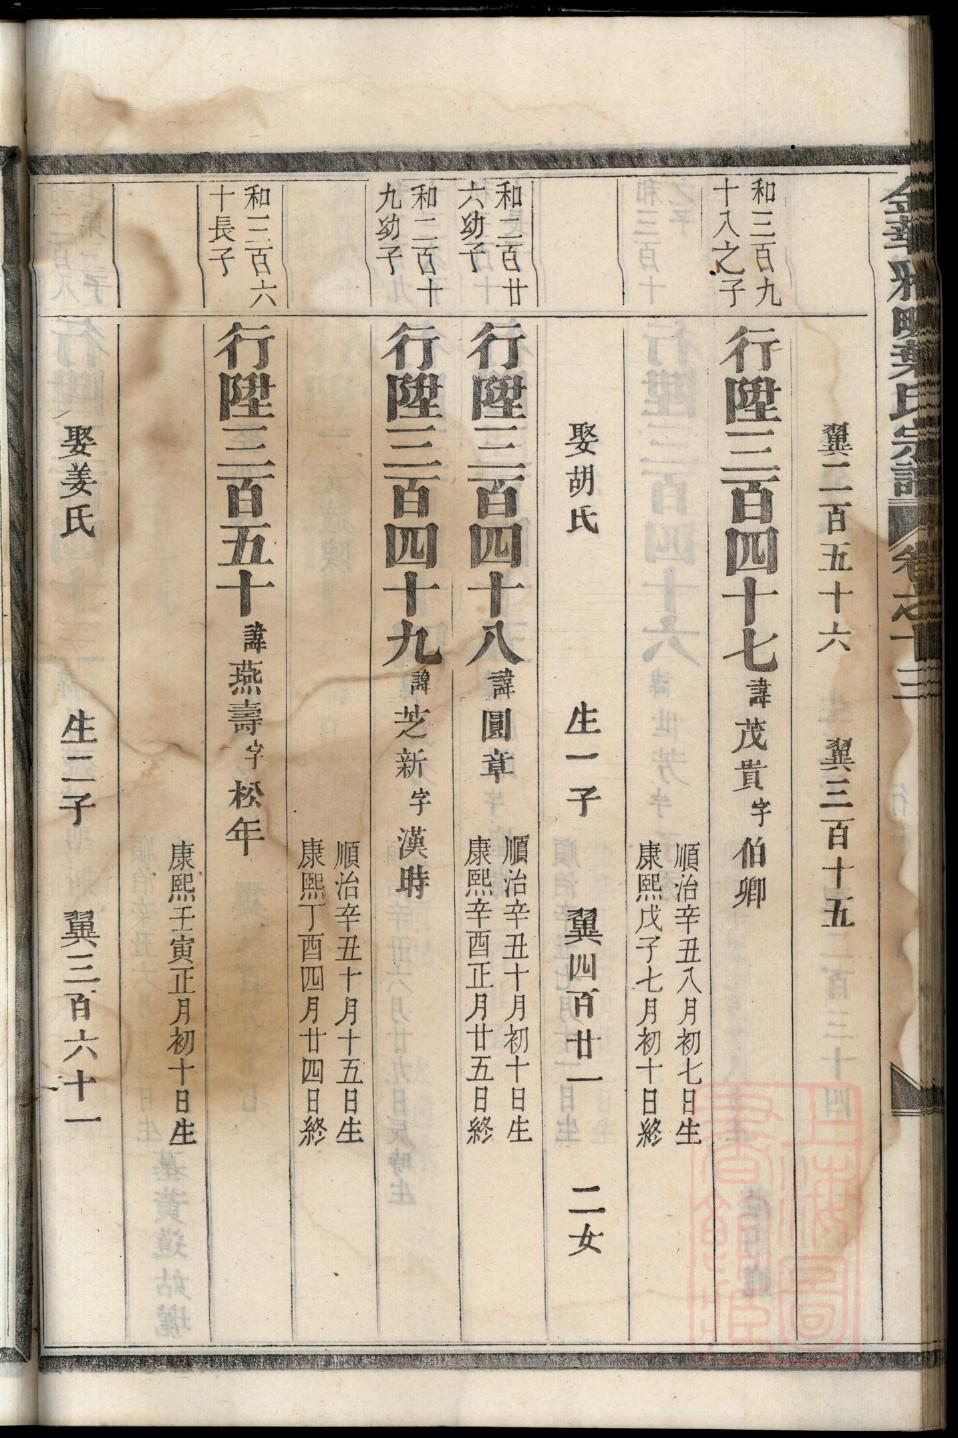 金華雅畈葉氏宗譜 卷之十三
翼二百五十六 翼三百十五
和三百九
十八之子
行陞三百四十七 諱茂貲字伯卿
順治辛丑八月初七日生
康熙戊子七月初十日終
娶胡氏 生一子 翼四百廿一 二女
和二百廿
六幼子
行陞三百四十八 諱圓章
順治辛丑十月初十日生
康熙辛酉正月廿五日終
和二百十
九幼子
行陞三百四十九 諱芝新字漢時
順治辛丑十月十五日生
康熙丁酉四月廿四日終
和二百六
十長子
行陞三百五十 諱燕壽字松年
康熙壬寅正月初十日生
娶姜氏 生二子 翼三百六十一